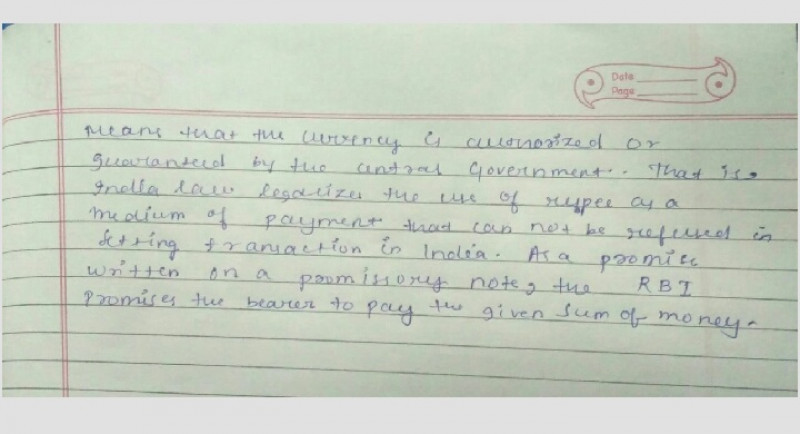 Date
Page
means that the currency is authorized or
guaranteed by the central Government. That is,
India law legalizes the use of rupee as a
medium of payment that can not be refused in
setting transaction in India. As a promise
written on a promissory note, the RBI
promises the bearer to pay the given sum of money.